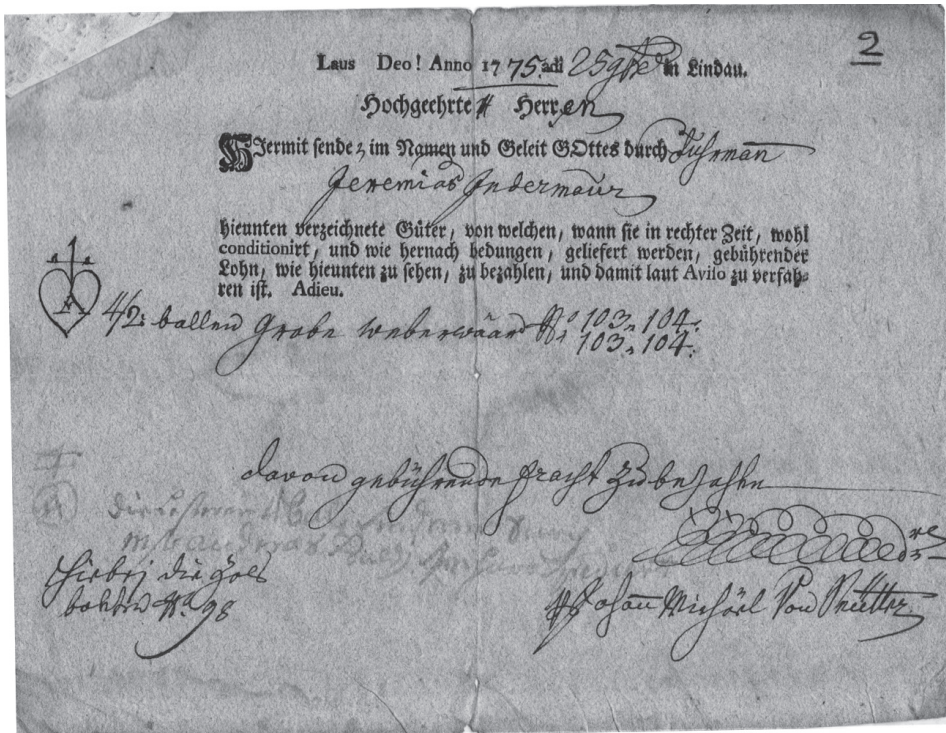 2
Laus Deo! Anno 1775. adi 25 9bre in Lindau.
Hochgeehrte Herren
HIermit sende, im Namen und Geleit GOttes durch Fuhrman
Jeremias Indermaur
hieunten verzeichnete Güter, von welchen, wann sie in rechter Zeit, wohl
conditionirt, und wie hernach bedungen, geliefert werden, gebührender
Lohn, wie hieunten zu sehen, zu bezahlen, und damit laut Aviso zu verfah-
ren ist. Adieu.
4/2: ballen Grobe weberwaar No 103, 104.
103, 104.
davon gebührende fracht zu bezahlen
hiebej die
No. 98
Johann Michael Von